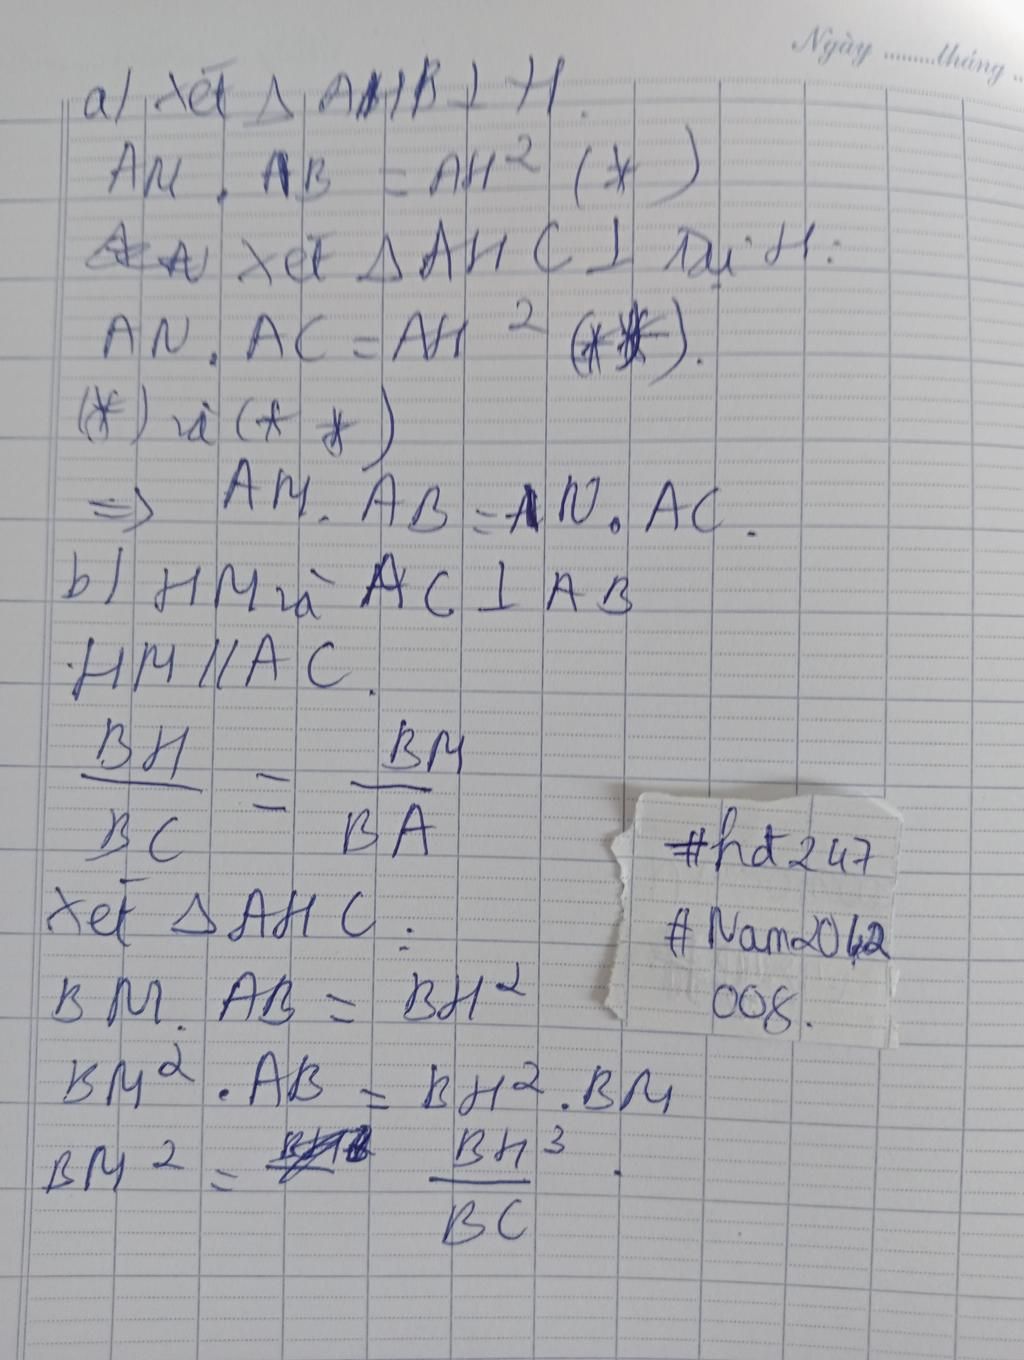 Ngày ........tháng ..
a) Xét Δ AHB ⊥ H.
AM . AB = AH² (*)
Xét Δ AHC ⊥ Tại H:
AN . AC = AH² (**).
(*) và (**)
=> AM . AB = AN . AC.
b) HM và AC ⊥ AB
HM // AC.
BH/BC = BM/BA
Xét Δ AHC :
BM . AB = BH²
BM² . AB = BH² . BM
BM² = BH³/BC .
#hd247
#Nam2042
008.